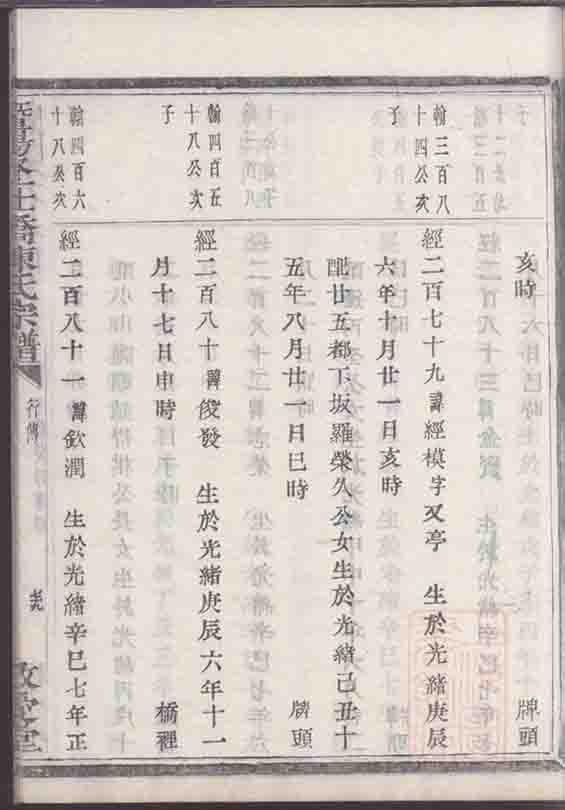 亥時 牌頭
翰三百八
十四公次
子
經二百七十九諱經模字又亭 生於光緒庚辰
六年十月廿一日亥時
配廿五都丁坂羅榮久公女生於光緒己丑十
五年八月廿一日巳時 牌頭
翰四百五
十八公次
子
經二百八十諱俊發 生於光緒庚辰六年十一
月十七日申時 橋裡
翰四百六
十八公次
經二百八十一諱欽潤 生於光緒辛巳七年正
陳氏宗譜
行傳